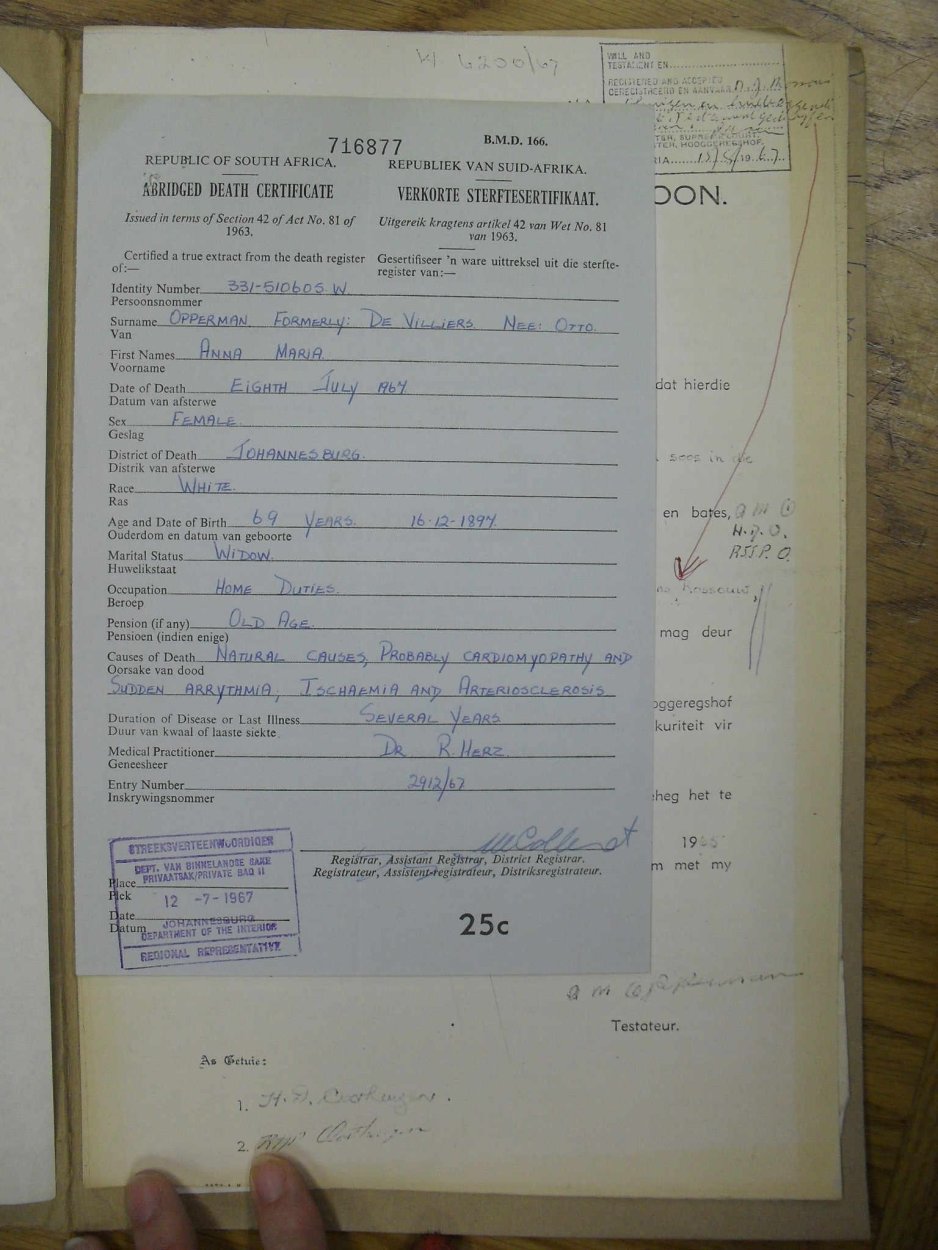 6200/67
WILL AND
TESTAMENT EN
REGISTERED AND ACCEPTED
GEREGISTREER EN AANVAAR
OON.
716877
B.M.D. 166.
REPUBLIC OF SOUTH AFRICA.
REPUBLIEK VAN SUID-AFRIKA.
ABRIDGED DEATH CERTIFICATE
VERKORTE STERFTESERTIFIKAAT.
Issued in terms of Section 42 of Act No. 81 of
1963.
Uitgereik kragtens artikel 42 van Wet No. 81
van 1963.
Certified a true extract from the death register
of:—
Gesertifiseer 'n ware uittreksel uit die sterfte-
register van:—
Identity Number 331-510605 W
Persoonsnommer
Surname OPPERMAN. FORMERLY: DE VILLIERS. NEE: OTTO.
Van
First Names ANNA MARIA
Voorname
Date of Death EIGHTH JULY 1967
Datum van afsterwe
Sex FEMALE.
Geslag
District of Death JOHANNESBURG.
Distrik van afsterwe
Race WHITE.
Ras
Age and Date of Birth 69 YEARS. 16-12-1897
Ouderdom en datum van geboorte
Marital Status WIDOW.
Huwelikstaat
Occupation HOME DUTIES.
Beroep
Pension (if any) OLD AGE.
Pensioen (indien enige)
Causes of Death NATURAL CAUSES, PROBABLY CARDIOMYOPATHY AND
Oorsake van dood
SUDDEN ARRYTHMIA; ISCHAEMIA AND ARTERIOSCLEROSIS
Duration of Disease or Last Illness SEVERAL YEARS
Duur van kwaal of laaste siekte
Medical Practitioner DR R. HERZ.
Geneesheer
Entry Number 2912/67
Inskrywingsnommer
Registrar, Assistant Registrar, District Registrar.
Registrateur, Assistent-registrateur, Distriksregistrateur.
STREEKSVERTEENWOORDIGER
DEPT. VAN BINNELANDSE SAKE
PRIVAATSAK/PRIVATE BAG 11
Place
Plek
12 -7-1967
Date
Datum
JOHANNESBURG
DEPARTMENT OF THE INTERIOR
REGIONAL REPRESENTATIVE
25c
dat hierdie
soos in die
en bates,
H.J.O.
mag deur
oggeregshof
kuriteit vir
heg het te
19
m met my
A M Opperman
Testateur.
As Getuie:
1.
2.